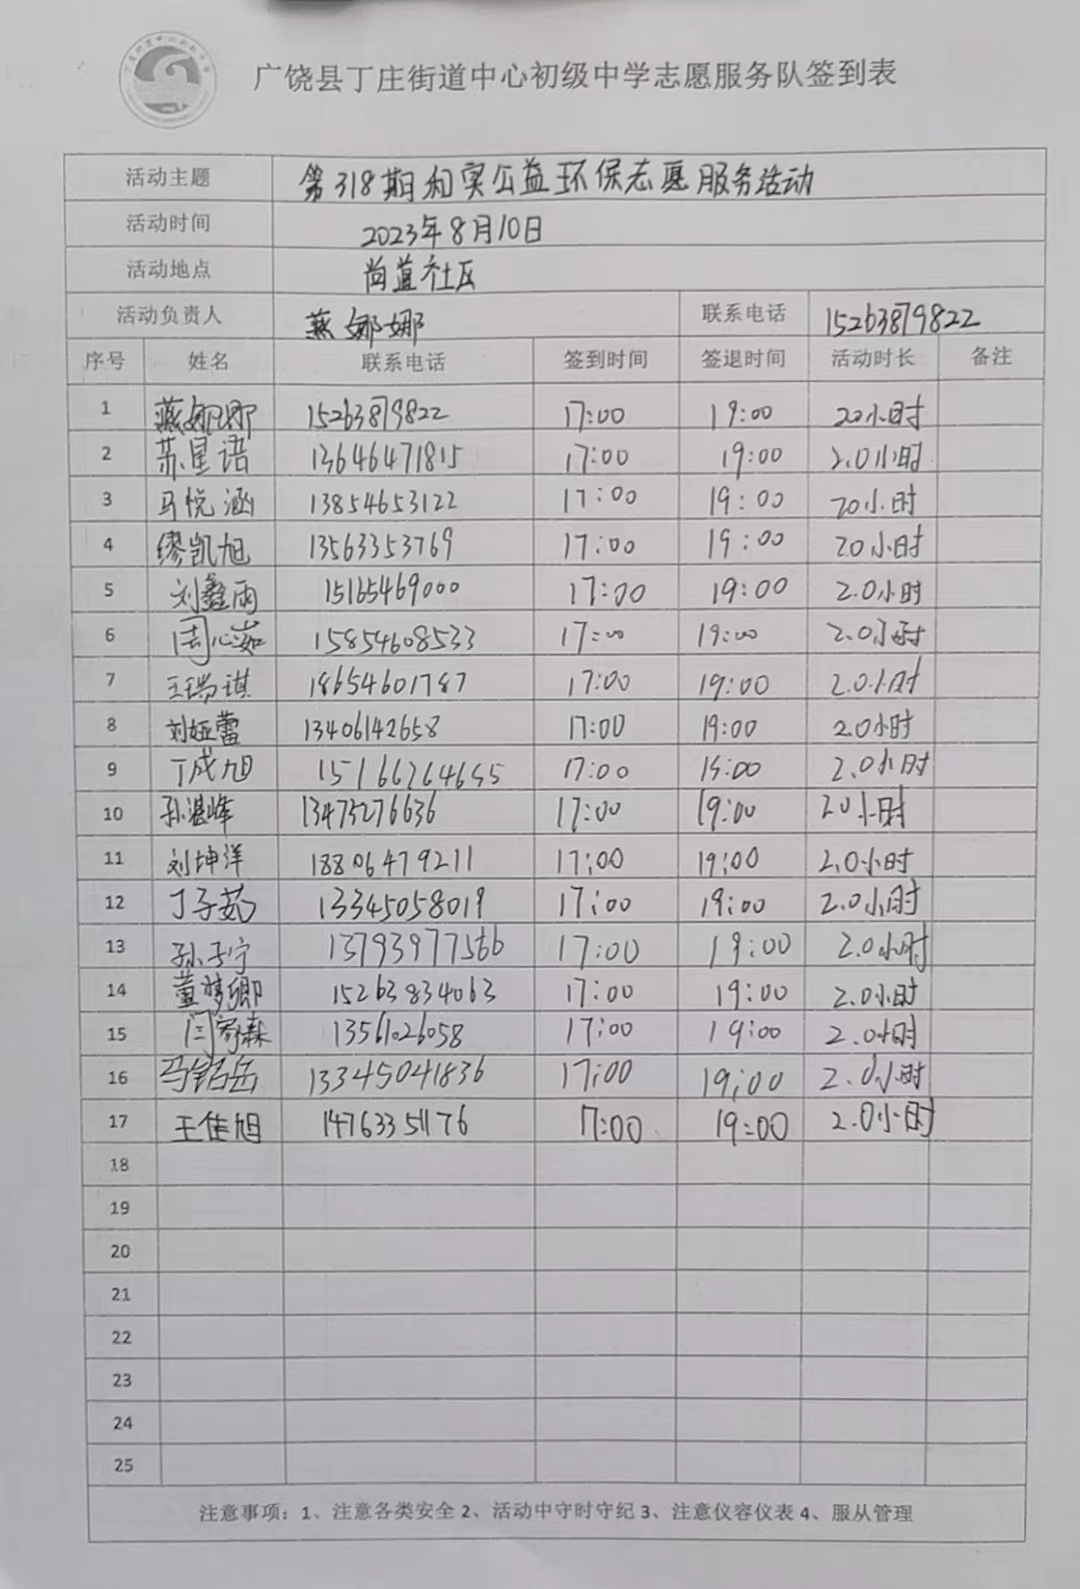 广饶县丁庄街道中心初级中学志愿服务队签到表
活动主题 第318期和实公益环保志愿服务活动
活动时间 2023年8月10日
活动地点 尚道社区
活动负责人 燕娜娜 联系电话 15263879822
序号 姓名 联系电话 签到时间 签退时间 活动时长 备注
1 燕娜娜 15263879822 17:00 19:00 20小时
2 苏星语 13646471815 17:00 19:00 2.0小时
3 马悦涵 13854653122 17:00 19:00 20小时
4 缪凯旭 13563353769 17:00 19:00 20小时
5 刘鑫雨 15165469000 17:00 19:00 2.0小时
6 周心茹 15854608533 17:00 19:00 2.0小时
7 王瑞琪 18654601787 17:00 19:00 2.0小时
8 刘娅蕾 13406142658 17:00 19:00 2.0小时
9 丁成旭 15166264655 17:00 19:00 2.0小时
10 孙湛峰 13475276636 17:00 19:00 2.0小时
11 刘坤洋 18806479211 17:00 19:00 2.0小时
12 丁子茹 13345058019 17:00 19:00 2.0小时
13 孙子宁 13793977566 17:00 19:00 2.0小时
14 董梦卿 15263834063 17:00 19:00 2.0小时
15 闫家森 13561026058 17:00 19:00 2.0小时
16 马铭岳 13345041836 17:00 19:00 2.0小时
17 王佳旭 14763351176 17:00 19:00 2.0小时
18
19
20
21
22
23
24
25
注意事项：1、注意各类安全 2、活动中守时守纪 3、注意仪容仪表 4、服从管理